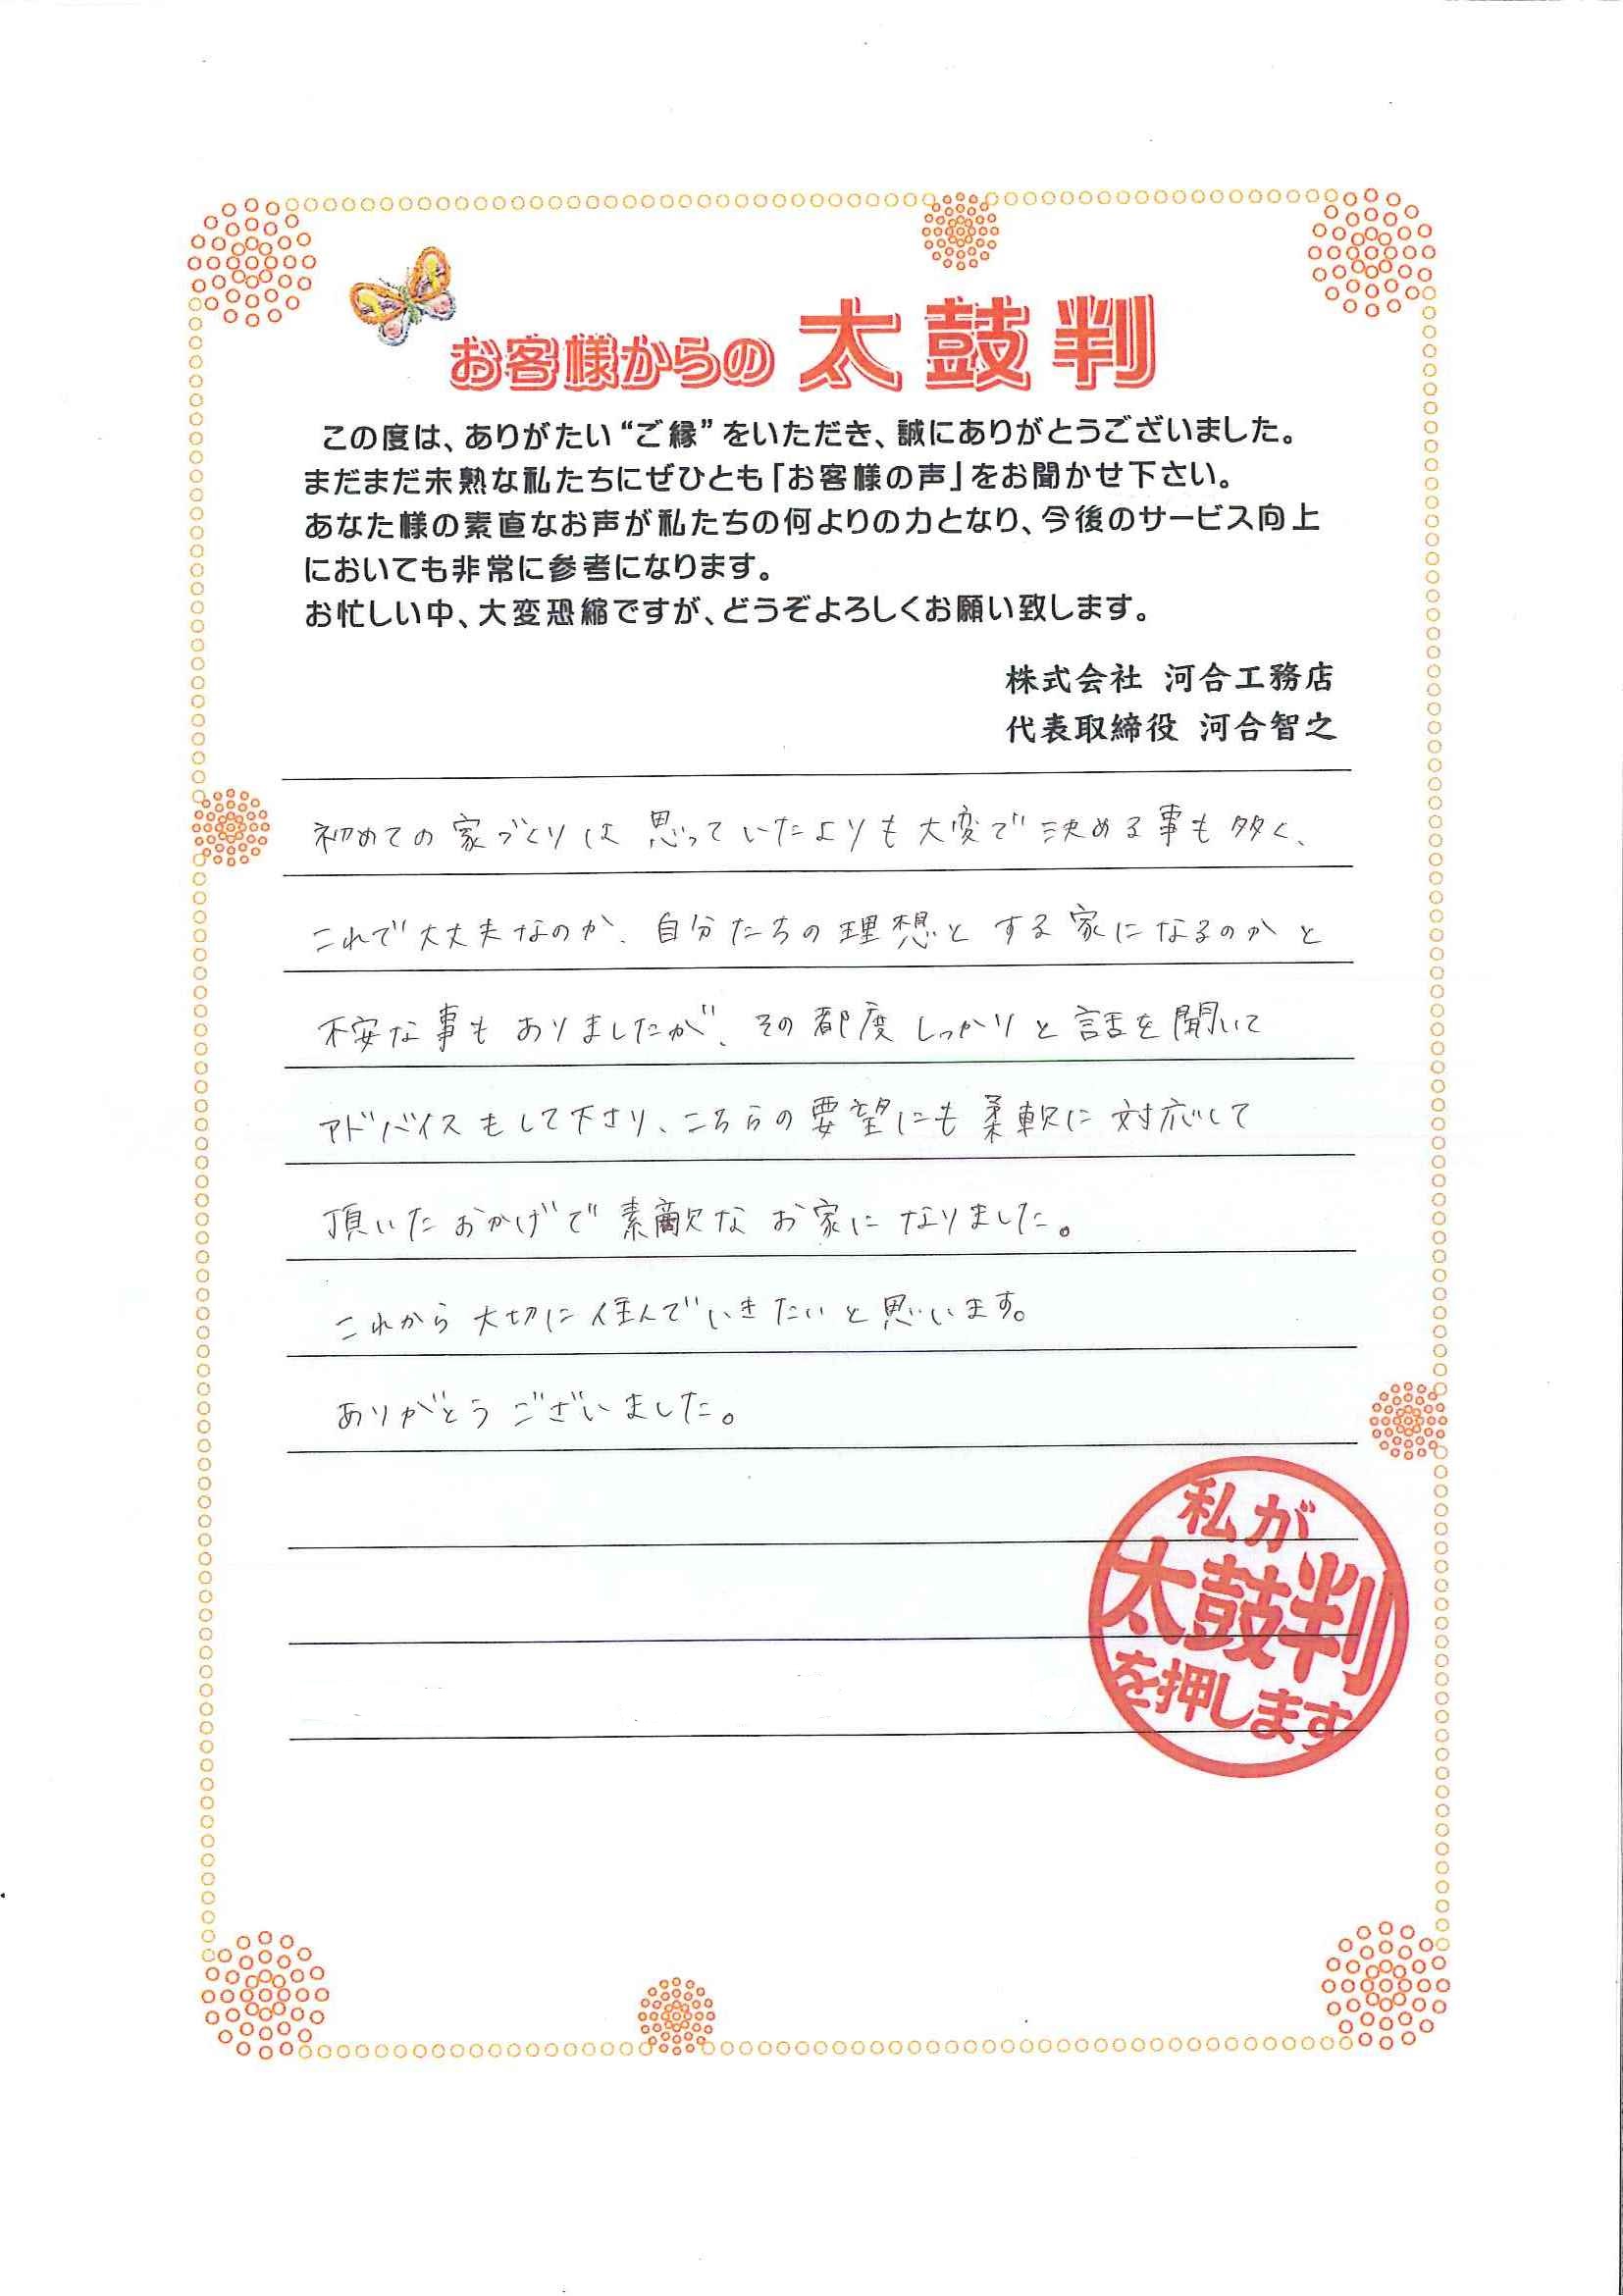 お客様からの 太鼓判
この度は、ありがたい“ご縁”をいただき、誠にありがとうございました。
まだまだ未熟な私たちにぜひとも「お客様の声」をお聞かせ下さい。
あなた様の素直なお声が私たちの何よりの力となり、今後のサービス向上
においても非常に参考になります。
お忙しい中、大変恐縮ですが、どうぞよろしくお願い致します。
株式会社 河合工務店
代表取締役 河合智之
初めての家づくりは思っていたよりも大変で決める事も多く、
これで大丈夫なのか、自分たちの理想とする家になるのかと
不安な事もありましたが、その都度しっかりと話を聞いて
アドバイスもして下さり、こちらの要望にも柔軟に対応して
頂いたおかげで素敵なお家になりました。
これから大切に住んでいきたいと思います。
ありがとうございました。
私が
太鼓判
を押します